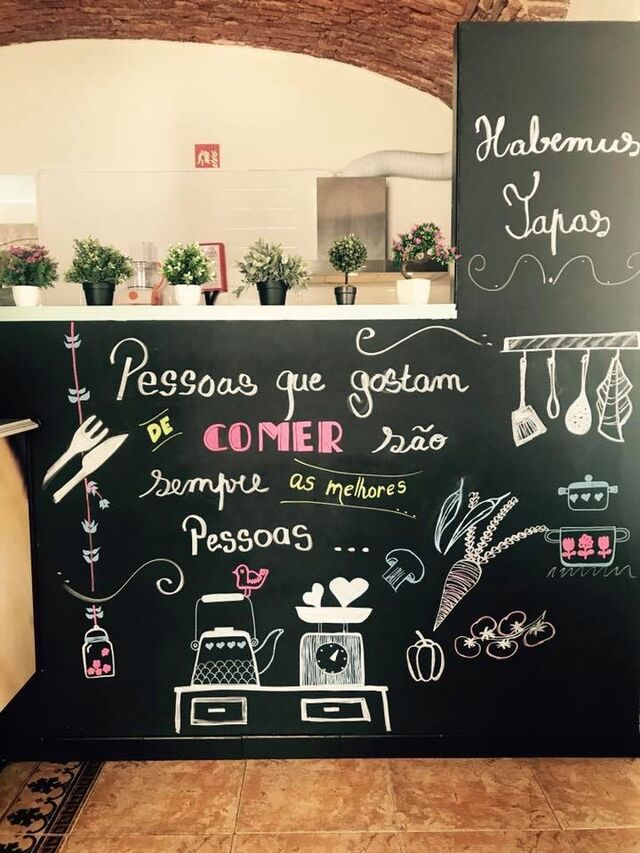 Habemus
Tapas
Pessoas que gostam
DE COMER são
sempre as melhores
Pessoas ...